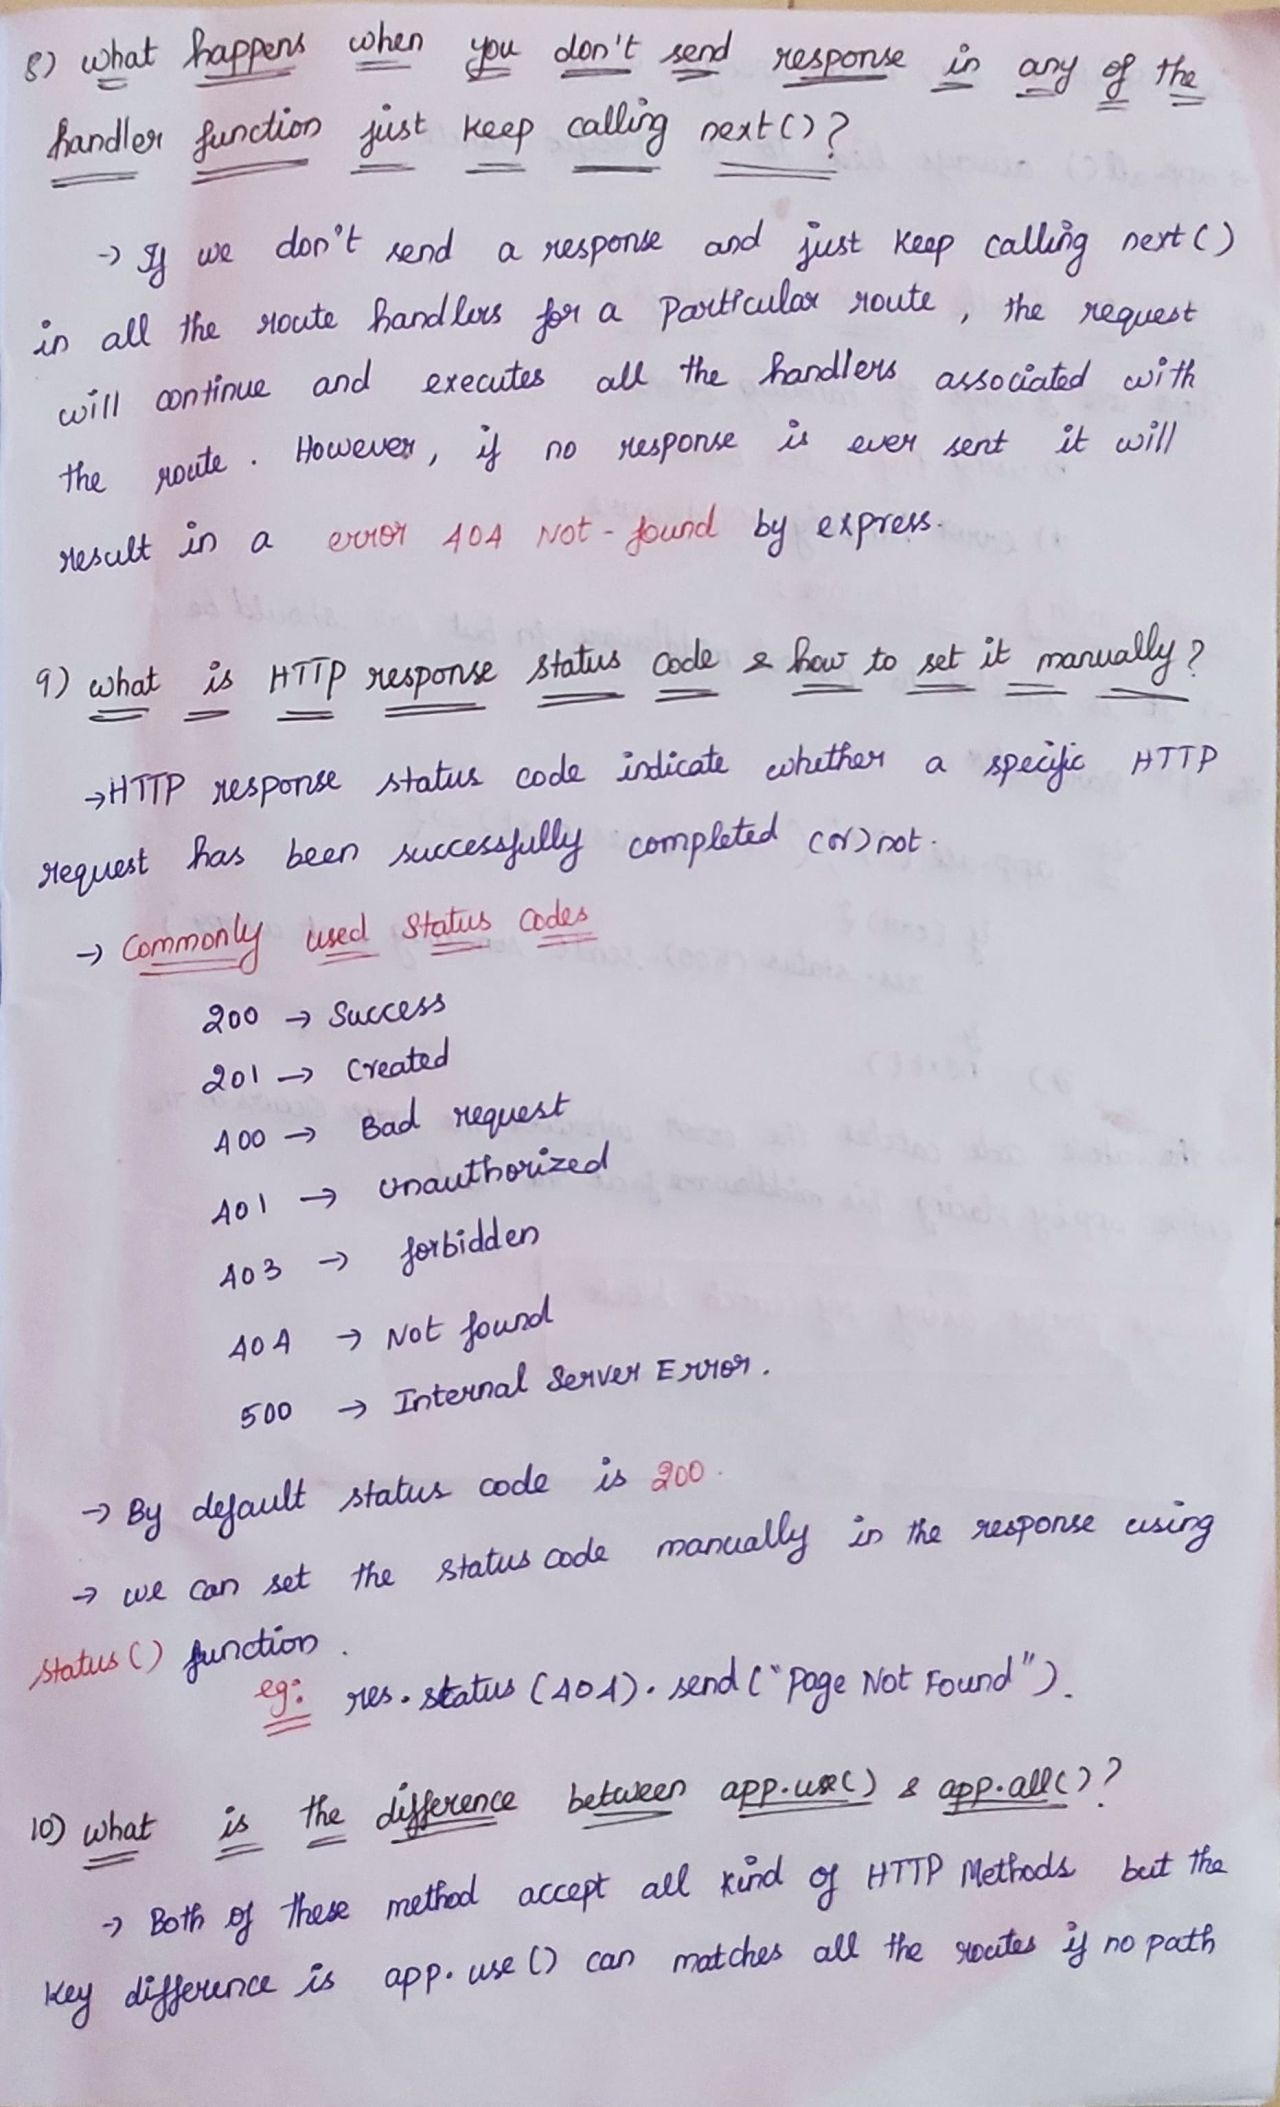 8) what happens when you don't send response in any of the
handler function just keep calling next()?
→ If we don't send a response and just keep calling next()
in all the route handlers for a particular route, the request
will continue and executes all the handlers associated with
the route. However, if no response is ever sent it will
result in a error 404 Not-found by express.
9) what is HTTP response status code & how to set it manually?
→ HTTP response status code indicate whether a specific HTTP
request has been successfully completed (or) not.
→ Commonly used Status Codes
200 → Success
201 → Created
400 → Bad request
401 → unauthorized
403 → forbidden
404 → Not found
500 → Internal Server Error.
→ By default status code is 200.
→ we can set the status code manually in the response using
status() function.
eg: res.status(404).send("Page Not Found").
10) what is the difference between app.use() & app.all()?
→ Both of these method accept all kind of HTTP Methods but the
key difference is app.use() can matches all the routes if no path